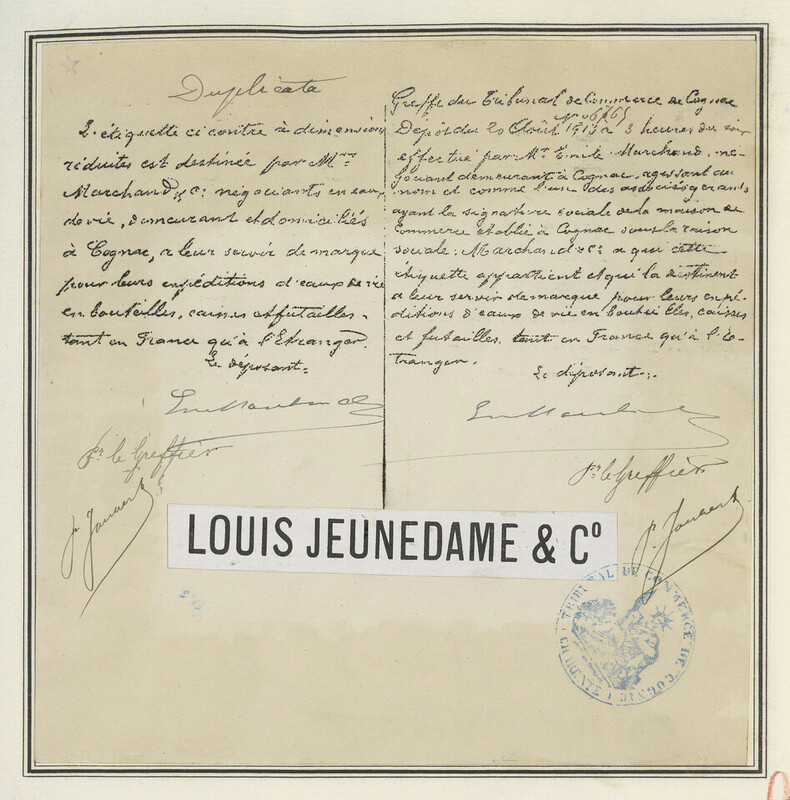 Duplicata
L'étiquette ci contre à dimensions
réduites est destinée par Mrs
Marchand & Cie négociants en eaux
de vie, demeurant et domiciliés
à Cognac, a leur servir de marque
pour leurs expéditions d'eaux de vie
en bouteilles, caisses et futailles -
tant en France qu'à l'Etranger.
Le déposant.
Pr le Greffier
Greffe du Tribunal de Commerce de Cognac
No 6765
Dépôt du 20 Août 1913 a 3 heures du soir
effectué par Mr Emile Marchand, né-
gociant demeurant à Cognac, agissant au
nom et comme l'un des associés gérants
ayant la signature sociale de la maison de
Commerce établie à Cognac sous la raison
sociale: Marchand & Cie a qui cette
étiquette appartient et qui la destinent
a leur servir de marque pour leurs expé-
ditions d'eaux de vie en bouteilles, caisses
et futailles, tant en France qu'à l'E-
tranger.
Le déposant.
Pr le Greffier
LOUIS JEUNEDAME & Co
TRIBUNAL DE COMMERCE DE COGNAC
CHARENTE